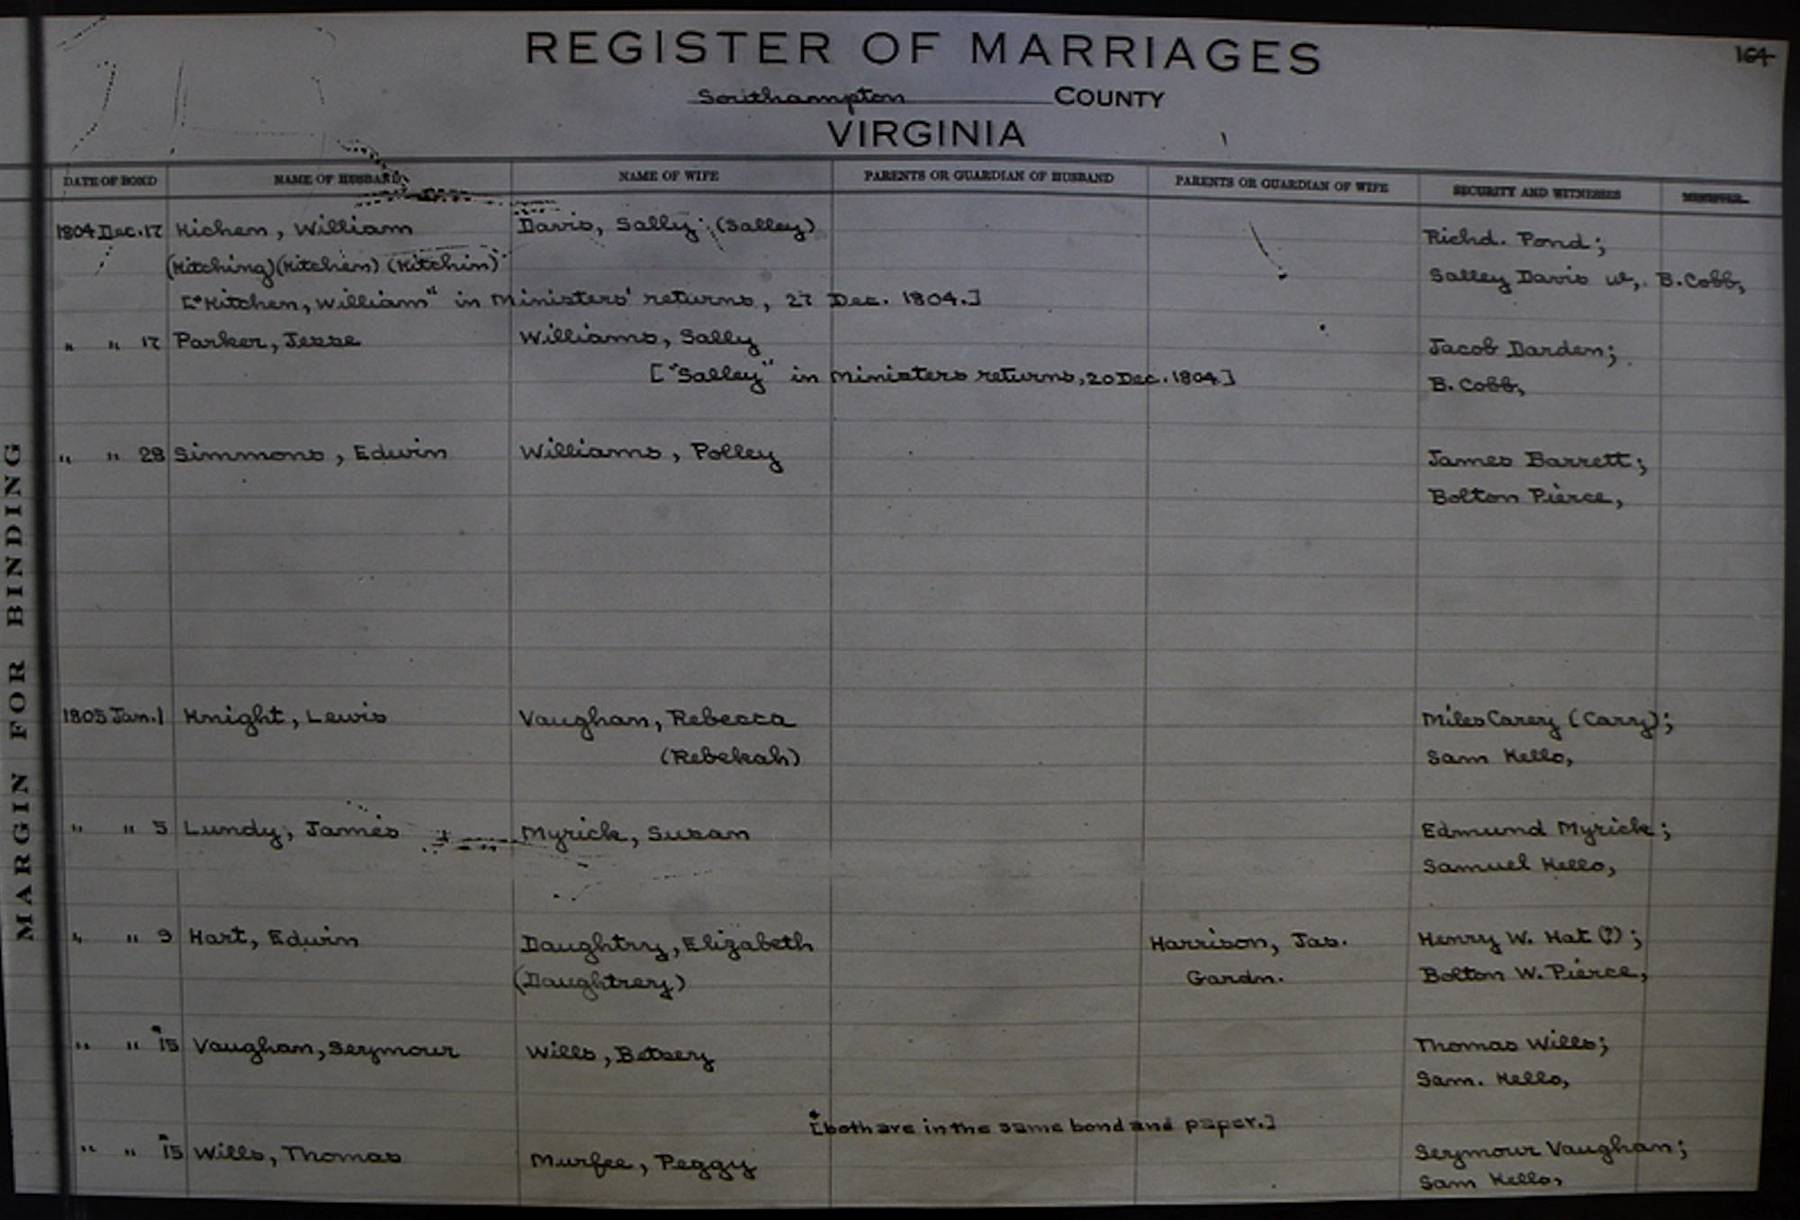 REGISTER OF MARRIAGES
164
Southampton COUNTY
VIRGINIA
DATE OF BOND NAME OF HUSBAND NAME OF WIFE PARENTS OR GUARDIAN OF HUSBAND PARENTS OR GUARDIAN OF WIFE SECURITY AND WITNESSES MINISTER
1804 Dec. 17 Kichen, William Davis, Sally (Salley) Richd. Pond;
(Kitching) (Kitchen) (Kitchin) Salley Davis w,. B. Cobb,
["Kitchen, William" in Ministers' returns, 27 Dec. 1804.]
" " 17 Parker, Jesse Williams, Sally Jacob Darden;
["Salley" in Ministers returns, 20 Dec. 1804] B. Cobb,
" " 28 Simmons, Edwin Williams, Polley James Barrett;
Bolton Pierce,
1805 Jan. 1 Knight, Lewis Vaughan, Rebecca Miles Carey (Cary);
(Rebekah) Sam Kello,
" " 5 Lundy, James Myrick, Susan Edmund Myrick;
Samuel Kello,
" " 9 Hart, Edwin Daughtry, Elizabeth Harrison, Jas. Henry W. Hat (?);
(Daughtrey) Gardn. Bolton W. Pierce,
" " *15 Vaughan, Seymour Wills, Betsey Thomas Wills;
Sam. Kello,
*[both are in the same bond and paper.]
" " *15 Wills, Thomas Murfee, Peggy Seymour Vaughan;
Sam Kello,
MARGIN FOR BINDING